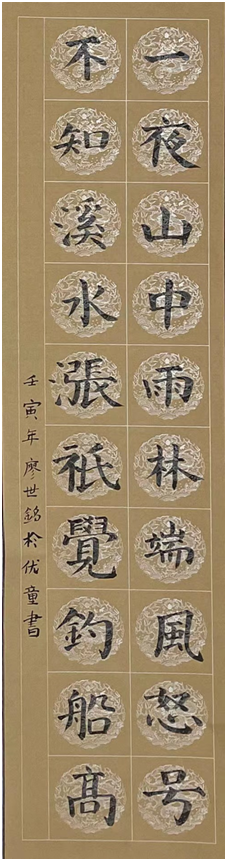 一夜山中雨林端風怒号
不知溪水漲祗覺釣船高
壬寅年廖世銘於优童書